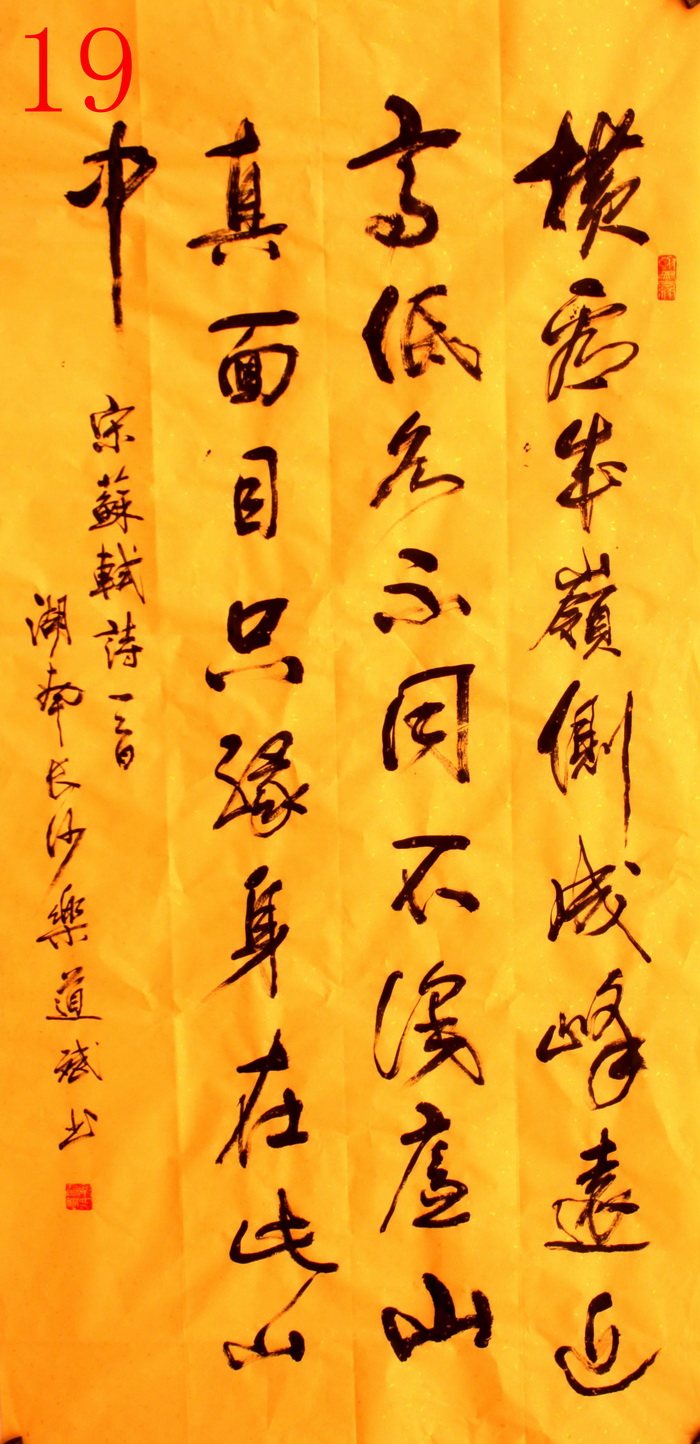 19
橫看成嶺側成峰遠近
高低各不同不識廬山
真面目只緣身在此山
中
宋蘇軾詩一首
湖南长沙樂道斌书